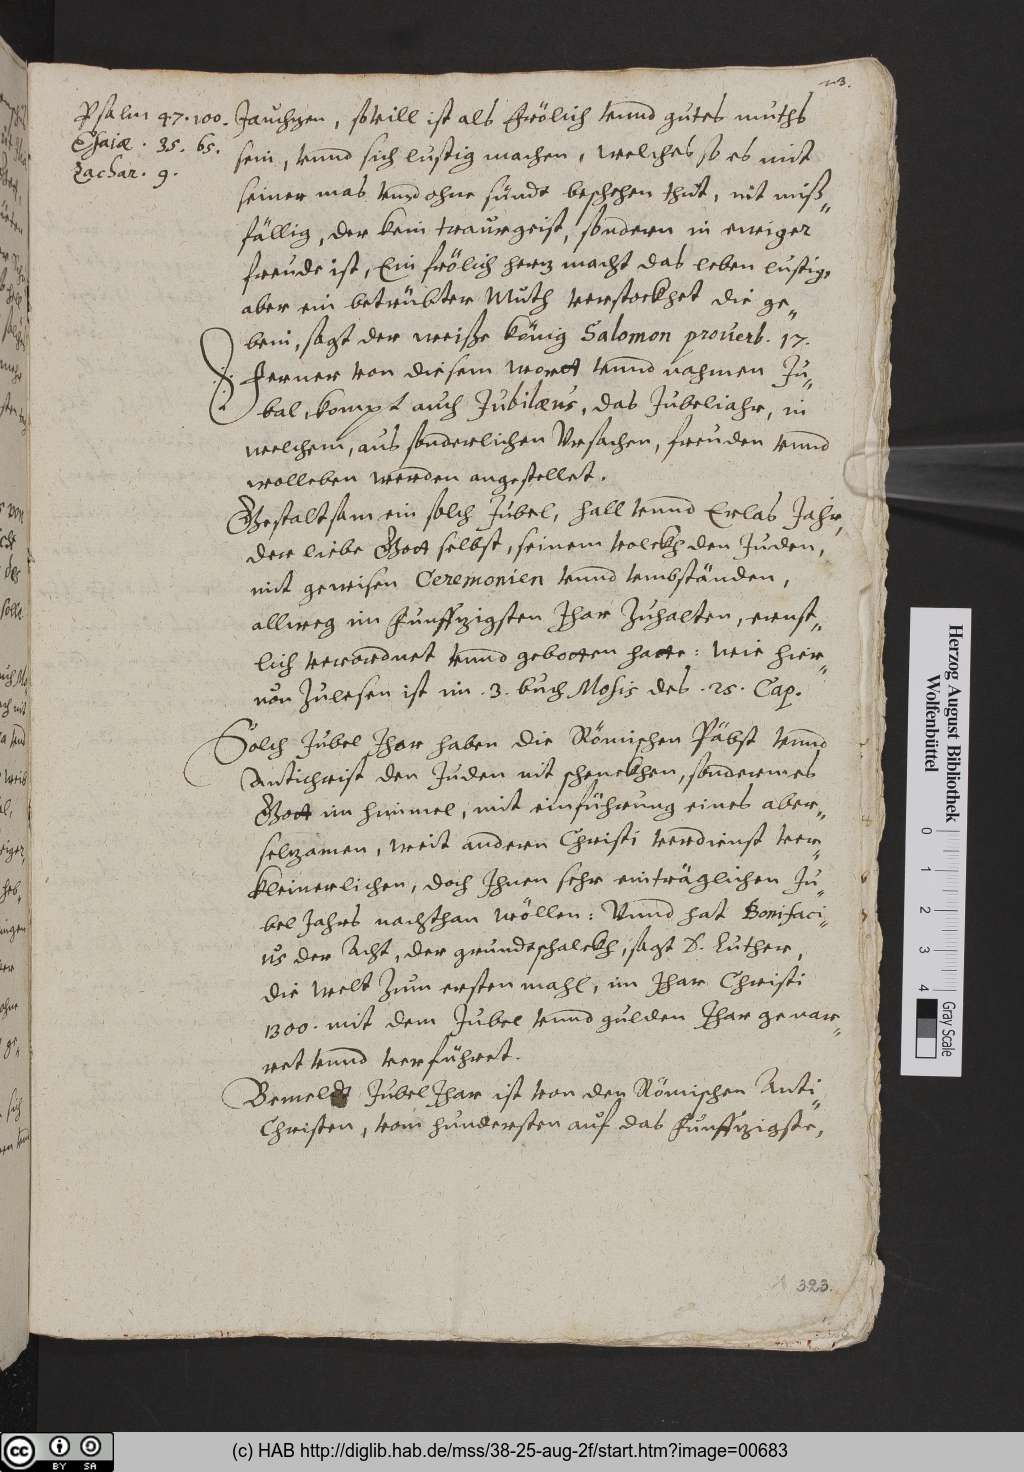 23.
Psalm 47. 100.
Esaiæ . 35. 65.
Zachar. 9.
Jauchzen, soviell ist als frölich vnnd gutes muths
sein, vnnd sich lustig machen, welches so es mit
seiner mas vnnd ohne sünde beschehen thut, nit miß„
fällig, der kein traurgeist, sondern in ewiger
freude ist, Ein frölich hertz macht das leben lustig,
aber ein betrübter Muth verstockhet die ge„
bein, sagt der weiße könig Salomon proverb. 17.
Ferner von diesem wortt vnnd nahmen Ju„
bal, kompt auch Jubilæus, das Jubeliahr, in
welchem, aus sonderlichen Vrsachen, freuden vnnd
wolleben werden angestellet.
Gestaltsam ein solch Jubel, hall vnnd Erlas Jahr,
der liebe Gott selbst, seinem volckh den Juden,
mit gewisen Ceremonien vnnd vmbständen,
allweg im funffzigsten Jhar Zuhalten, ernst„
lich verordnet vnnd gebotten hatte: wie hier„
von Zulesen ist im .3. buch Mosis des .25. Cap.
Solch Jubel Jhar haben die Römischen Päbst vnnd
Antichrist den Juden nit schenckhen, sondern es
Gott im himmel, mit einführung eines aber„
seltzamen, weit andern Christi verdienst ver„
kleinerlichen, doch Jhnen sehr einträglichen Ju„
bel Jahrs nachthan wöllen: Vnnd hat Bonifaci„
us der Acht, der grundschalckh, sagt D. Luther,
die welt Zum ersten mahl, im Jhar Christi
1300. mit dem Jubel vnnd gulden Jhar genar„
ret vnnd verführet.
Bemeldt Jubel Jhar ist von den Römischen Anti„
Christen, vom hundersten auf das funffzigste,
323.
Herzog August Bibliothek
Wolfenbüttel
0 1 2 3 4
Gray Scale
cc BY SA
(c) HAB http://diglib.hab.de/mss/38-25-aug-2f/start.htm?image=00683